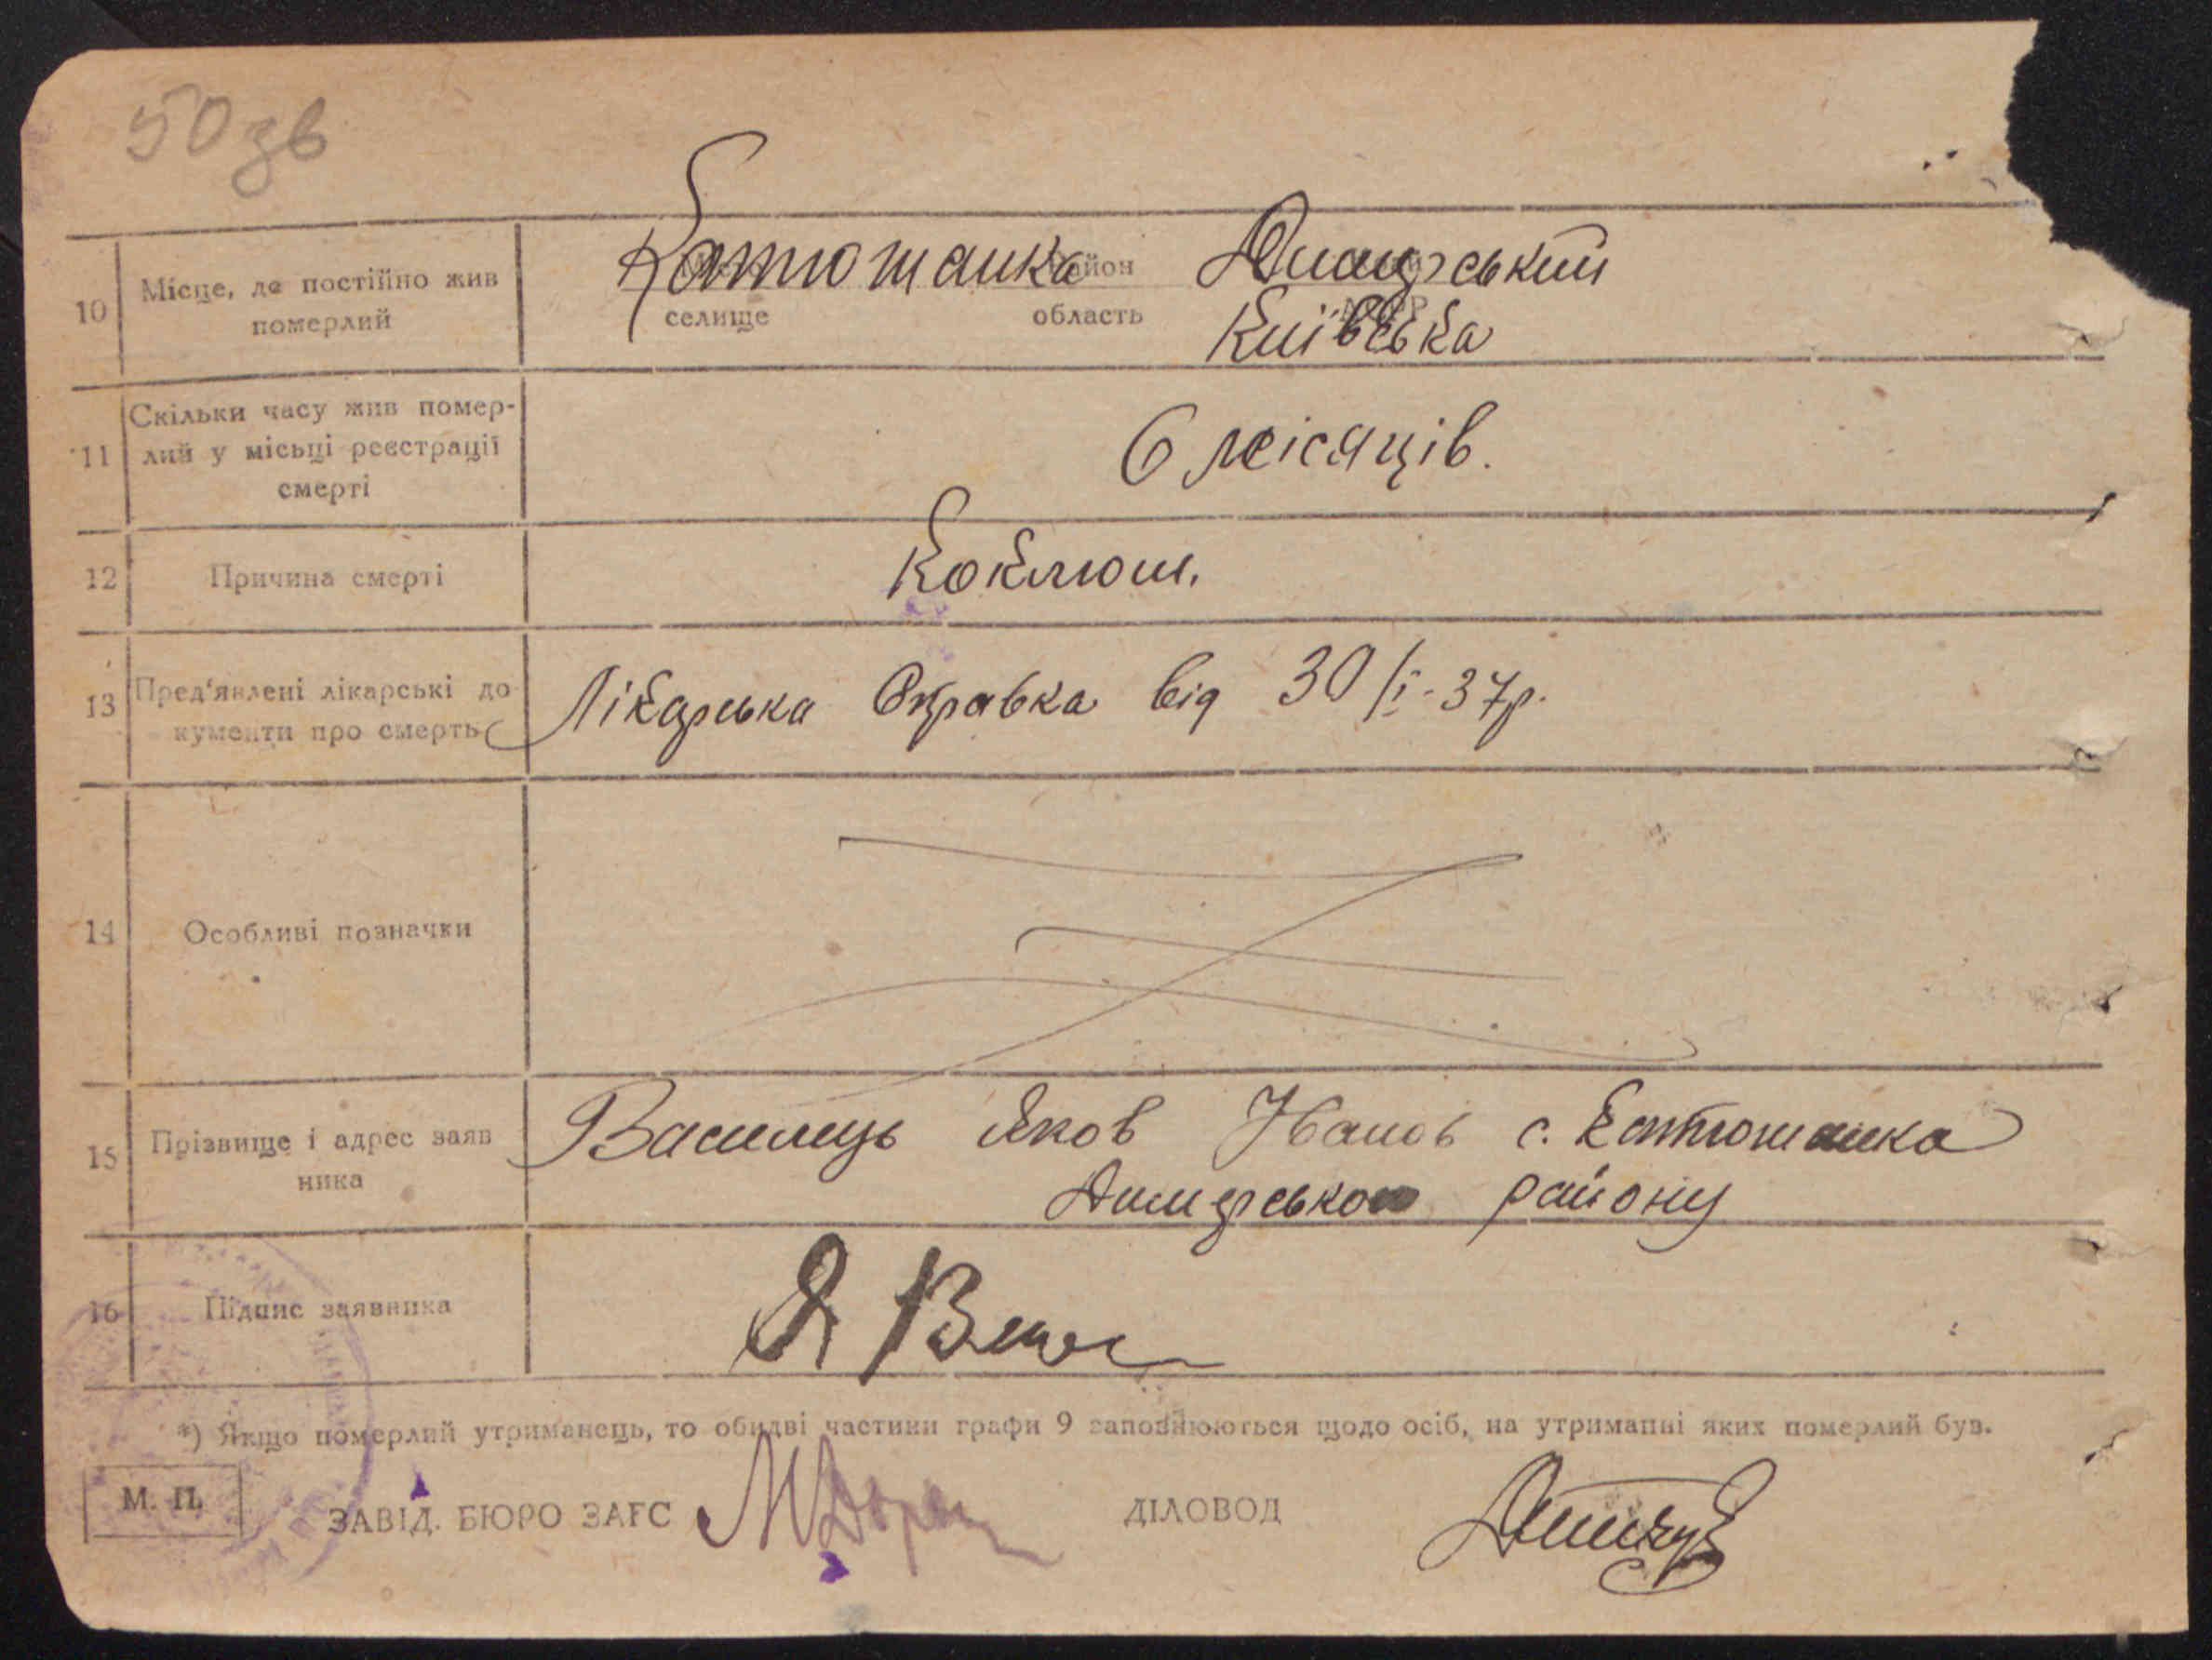 50 зв
10 Місце, де постійно жив померлий Катюжанка район Димерський
селище область Київська
11 Скільки часу жив померлий у місьці реєстрації смерті 6 місяців.
12 Причина смерті Коклюш.
13 Пред'явлені лікарські документи про смерть Лікарська Справка від 30/I-37р.
14 Особливі позначки
15 Прізвище і адрес заявника Василець Яков Іванов с. Катюжанка
Димерського району
16 Підпис заявника Я
*) Якщо померлий утриманець, то обидві частини графи 9 заповнюються щодо осіб, на утриманні яких померлий був.
М. П. ЗАВІД. БЮРО ЗАГС ДІЛОВОД